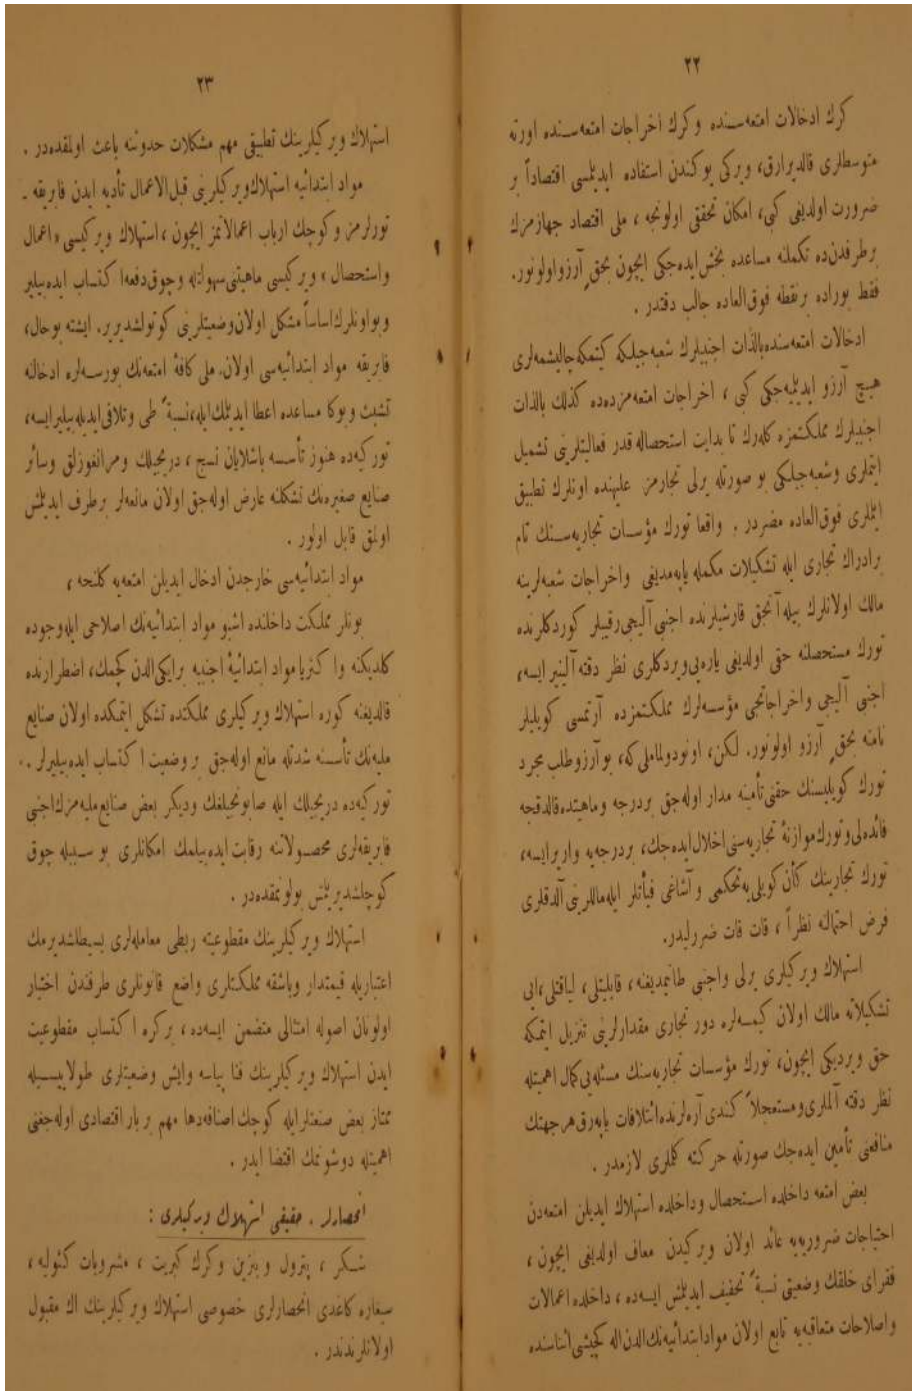 ٢٢
كرك ادخالات امتعه‌سنده وكرك اخراجات امتعه‌سنده اورته
متوسطلری قالدیرارق، ویركی یوكندن استفاده ایدیلمسی اقتصاداً بر
ضرورت اولدیغی كبی، امكان تحققی اولونجه، ملی اقتصاد جهازمزك
برطرفدن‌ده تكملنه مساعده بخش ایده‌جكی ایچون بحق آرزو اولونور.
فقط بوراده برنقطه فوق‌العاده جالب دقتدر.
ادخالات امتعه‌سنده بالذات اجنبیلرك شعبه‌جیلكه كیتمكه چالیشمه‌لری
هیچ آرزو ایدیلمیه‌جكی كبی، اخراجات امتعه‌مزده‌ده كذلك بالذات
اجنبیلرك مملكتمزه كله‌رك تا بدایت استحصاله قدر فعالیتلرینی تشمیل
ایتملری وشعبه‌جیلكی بو صورتله یرلی تجارمز علیهنده اونلرك تطبیق
ایتملری فوق‌العاده مضردر. واقعا تورك مؤسسات تجاریه‌سنك تام
برادراك تجاری ایله تشكیلات مكمله یاپه‌مدیغی واخراجات شعبه‌لرینه
مالك اولانلرك بیله آنجق قارشیلرنده اجنبی آلیجی رقیبلر كوردكلرنده
تورك مستحصلنه حقی اولدیغی پاره‌یی ویردكلری نظر دقته آلینیر ایسه،
اجنبی آلیجی واخراجاتجی مؤسسه‌لرك مملكتمزده آرتمسی كویلیلر
نامنه بحق آرزو اولونور. لكن، اونودولماملی كه، بو آرزو وطلب مجرد
تورك كویلیسنك حقنی تأمینه مدار اوله‌جق بردرجه وماهیتده قالدقجه
فائده‌لی وتورك موازنۀ تجاریه‌سنی اخلال ایده‌جك، بردرجه‌یه واریرایسه،
تورك تجارینك كأن كویلی‌یه تحكمی وآشاغی فیأتلر ایله ماللرینی آلدقلری
فرض احتمالنه نظراً، قات قات ضررلیدر.
استهلاك ویركیلری یرلی واجنبی طانیمدیغنه، قابلیتلی، لیاقتلی، ایی
تشكیلاته مالك اولان كیمسه‌لره دور تجاری مقدارلرینی تنزیل ایتمكه
حق ویردیكی ایچون، تورك مؤسسات تجاریه‌سنك مسئله‌یی كمال اهمیتله
نظر دقته آلملری ومستعجلاً كندی آره‌لرنده ائتلافات یاپه‌رق هر جهتك
منافعنی تأمین ایده‌جك صورتله حركته كلملری لازمدر.
بعض امتعه داخلده استحصال وداخلده استهلاك ایدیلن امتعه‌دن
احتیاجات ضروریه‌یه عائد اولان ویركیدن معاف اولدیغی ایچون،
فقرای خلقك وضعیتی نسبةً تخفیف ایدیلمش ایسه‌ده، داخلده اعمالات
واصلاحات متعاقبه‌یه تابع اولان مواد ابتدائیه‌نك الدن اله كچیشی اثناسنده
٢٣
استهلاك ویركیلرینك تطبیقی مهم مشكلات حدوثنه باعث اولمقده‌در.
مواد ابتدائیه استهلاك ویركیلرینی قبل الاعمال تأدیه ایدن فابریقه‌ـ
تورلرمز وكوچك ارباب اعمالاتمز ایچون، استهلاك ویركیسی «اعمال
واستحصال» ویركیسی ماهیتنی سهولتله وچوق دفعه‌ا كتساب ایده‌بیلیر
وبواونلرك اساساً مشكل اولان وضعیتلرینی كوتولشدیریر. ایشته بوحال،
فابریقه مواد ابتدائیه‌سی اولان. ملی كافۀ امتعه‌نك بورسه‌لره ادخالنه
تشبث وبوكا مساعده اعطا ایدیلمك ایله، نسبةً طی وتلافی ایدیله‌بیلیر ایسه،
توركیه‌ده هنوز تأسسه باشلایان نسج، دریجیلك ومرانغوزلق وسائر
صنایع صغیره‌نك تشكلنه عارض اوله‌جق اولان مانعه‌لر برطرف ایدیلمش
اولمق قابل اولور.
مواد ابتدائیه‌سی خارجدن ادخال ایدیلن امتعه‌یه كلنجه،
بونلر مملكت داخلنده اشبو مواد ابتدائیه‌نك اصلاحی ایله وجوده
كلدیكنه وا كثریا مواد ابتدائیۀ اجنبیه برایكی الدن كچمك، اضطرارنده
قالدیغنه كوره استهلاك ویركیلری مملكتده تشكل ایتمكده اولان صنایع
ملیه‌نك تأسسنه شدتله مانع اوله‌جق بر وضعیت ا كتساب ایده‌بیلیرلر.
توركیه‌ده دریجیلك ایله صابونجیلغك ودیكر بعض صنایع ملیه‌مزك اجنبی
فابریقه‌لری محصولاتنه رقابت ایده‌بیلمك امكانلری بو سببله چوق
كوچلشدیریلمش بولونمقده‌در.
استهلاك ویركیلرینك مقطوعیته ربطی معامله‌لری بسیطلشدیرمك
اعتباریله قیمتدار وباشقه مملكتلری واضع قانونلری طرفندن اختیار
اولونان اصوله امتثالی متضمن ایسه‌ده، بركره ا كتساب مقطوعیت
ایدن استهلاك ویركیلرینك فنا پیاسه وایش وضعیتلری طولاییسیله
ممتاز بعض صنعتلر ایله كوچك اصنافه‌دها مهم بر بار اقتصادی اوله‌جغنی
اهمیتله دوشونمك اقتضا ایدر.
انحصارلر. حقیقی استهلاك ویركیلری:
شكر، پترول وبنزین وكرك كبریت، مشروبات كئولیه،
سیغاره كاغدی انحصارلری خصوصی استهلاك ویركیلرینك اك مقبول
اولانلرندندر.